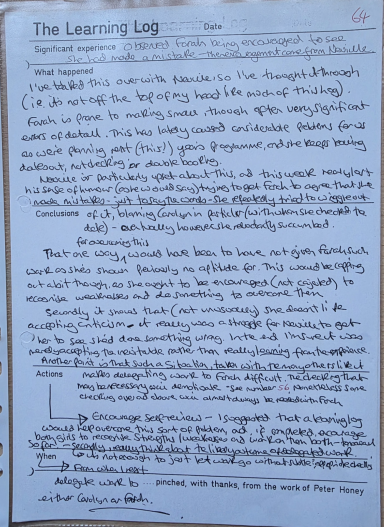 64
The Learning Log Date
Significant experience observed Farah being encouraged to see
she had made a mistake - the encouragement came from Neville.
What happened
I've talked this over with Neville so I've thought it through
(i.e. it's not off the top of my head like much of this log).
Farah is prone to making small, though often very significant
errors of detail. This has lately caused considerable problems for us
as we're planning next (this!) year's programme, and she keeps
dates out, not checking or double booking.
Neville particularly upset about this, and this week nearly lost
his sense of humour (as he would say) trying to get Farah to agree that she
made mistakes - just to say the words - she repeatedly tried to wriggle out
Conclusions of it, blaming Carolyn in particular (with whom she checked the
date) - eventually however she reluctantly succumbed.
for overcoming this
That one way would have been to have not given Farah such
work as she's shown no aptitude for. This would be copping
out a bit though, as she ought to be encouraged (not cajoled) to
recognise weaknesses and do something to overcome them
Secondly it shows that (not unusually) she doesn't like
accepting criticism. It really was a struggle for Neville to get
her to see she'd done something wrong.
merely accepting to rather than really learning from the experience.
Another point is that such a
Actions makes delegating work to Farah difficult. The checking that
may be necessary see number 56. Nonetheless some
checking over and above
Encourage self review - I suggested that a learning log
would help overcome this sort of problem and, if completed, encourage
both girls to recognise strengths/weaknesses and work on them both
so far - secondly, really think about the likely outcome of delegated work
When
From when I next
delegate work to ....pinched, with thanks, from the work of Peter Honey
either Carolyn or Farah.